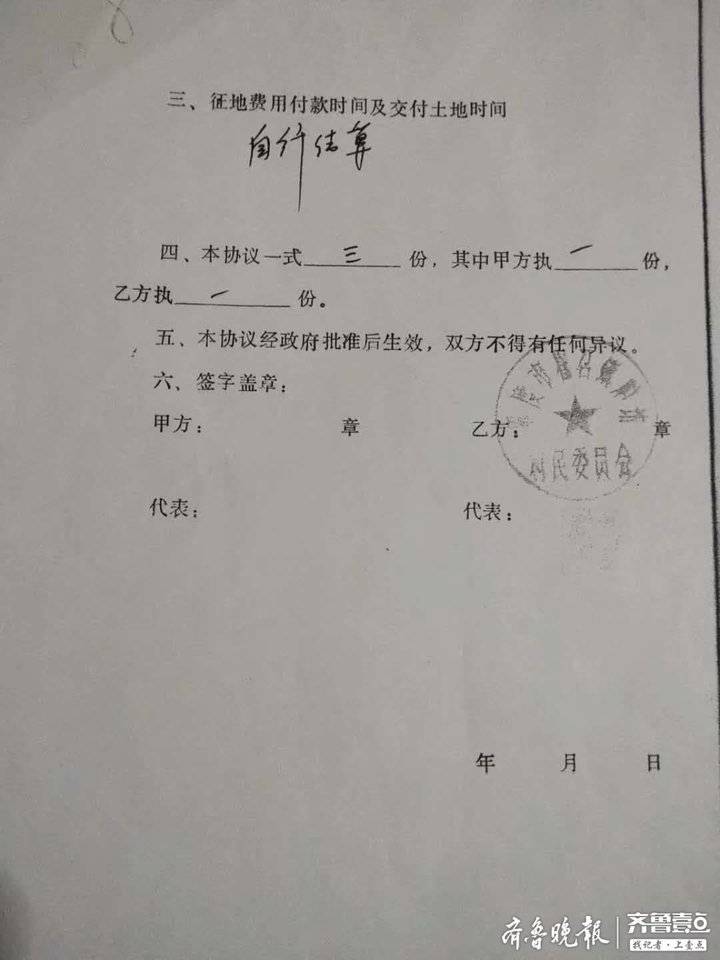 三、征地费用付款时间及交付土地时间
自行结算
四、本协议一式三份，其中甲方执一份，
乙方执一份。
五、本协议经政府批准后生效，双方不得有任何异议。
六、签字盖章：
甲方： 章 乙方： 章
村民委员会
代表： 代表：
年 月 日
齐鲁晚报 齐鲁壹点
找记者·上壹点